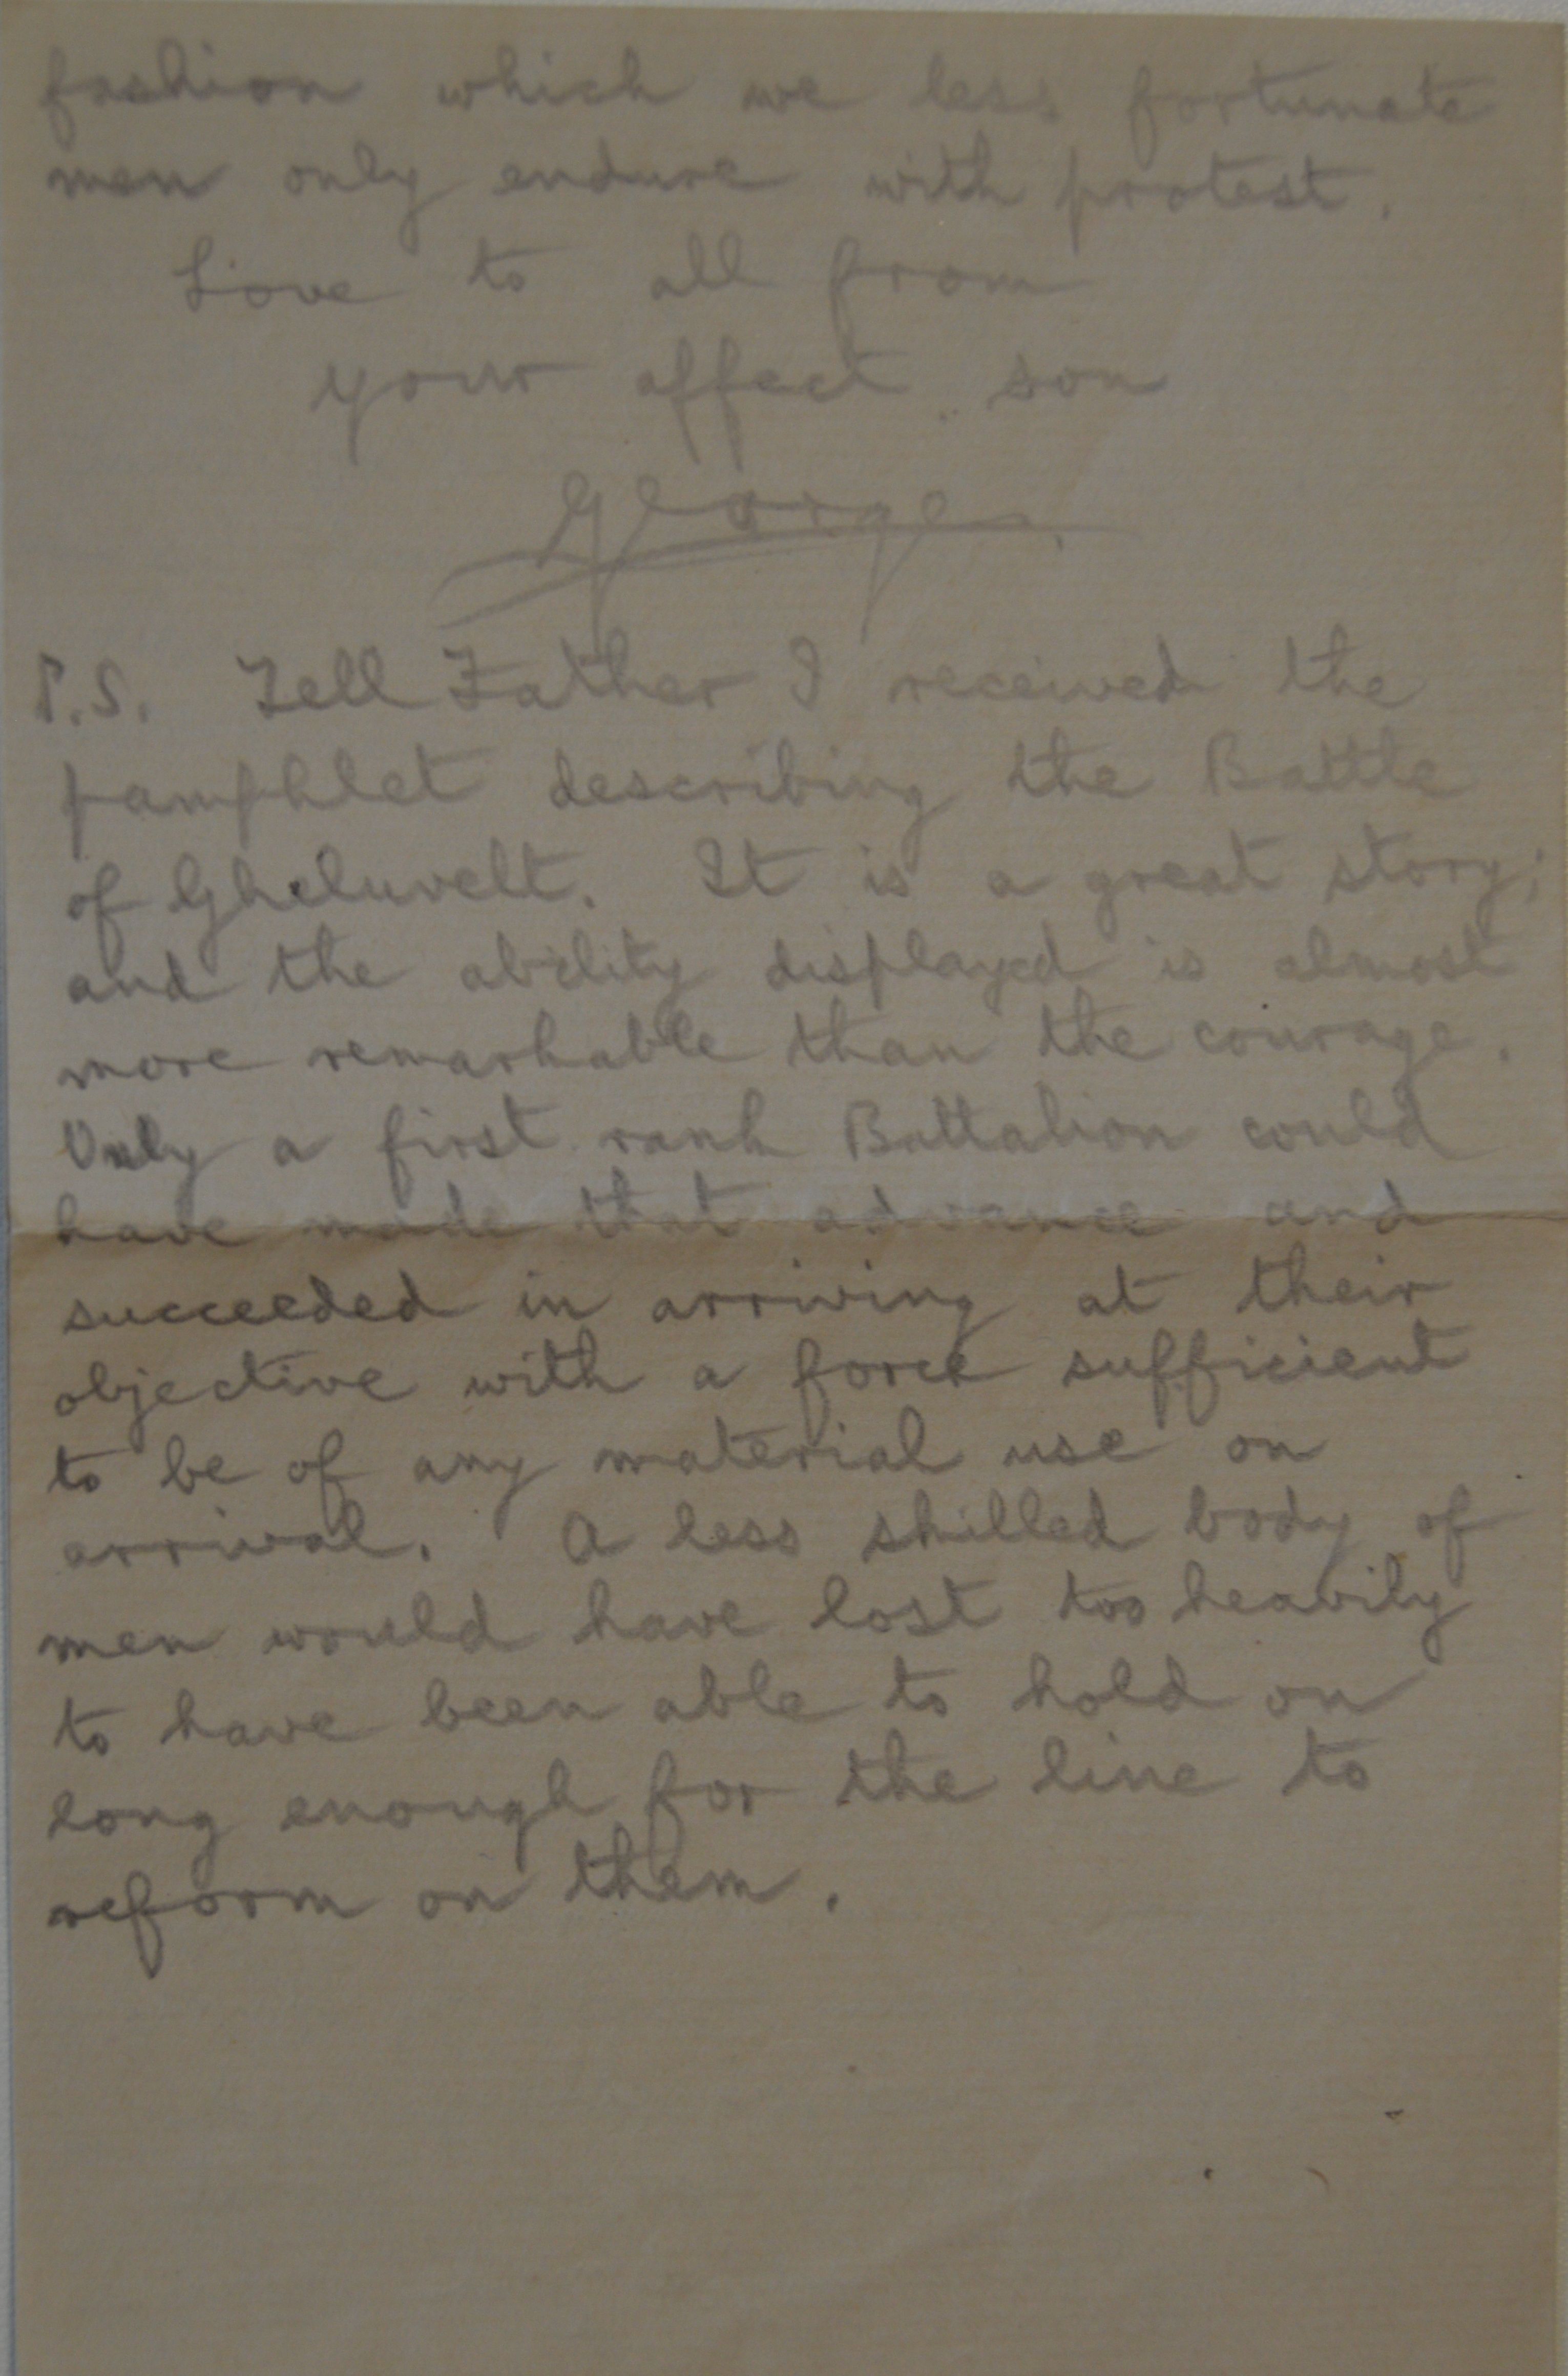 fashion which we less fortunate
men only endure with protest.
Love to all from
your affect. son
George.
P.S. Tell Father I received the
pamphlet describing the Battle
of Gheluvelt. It is a great story;
and the ability displayed is almost
more remarkable than the courage.
Only a first rank Battalion could
have made that advance and
succeeded in arriving at their
objective with a force sufficient
to be of any material use on
arrival. A less skilled body of
men would have lost too heavily
to have been able to hold on
long enough for the line to
reform on them.